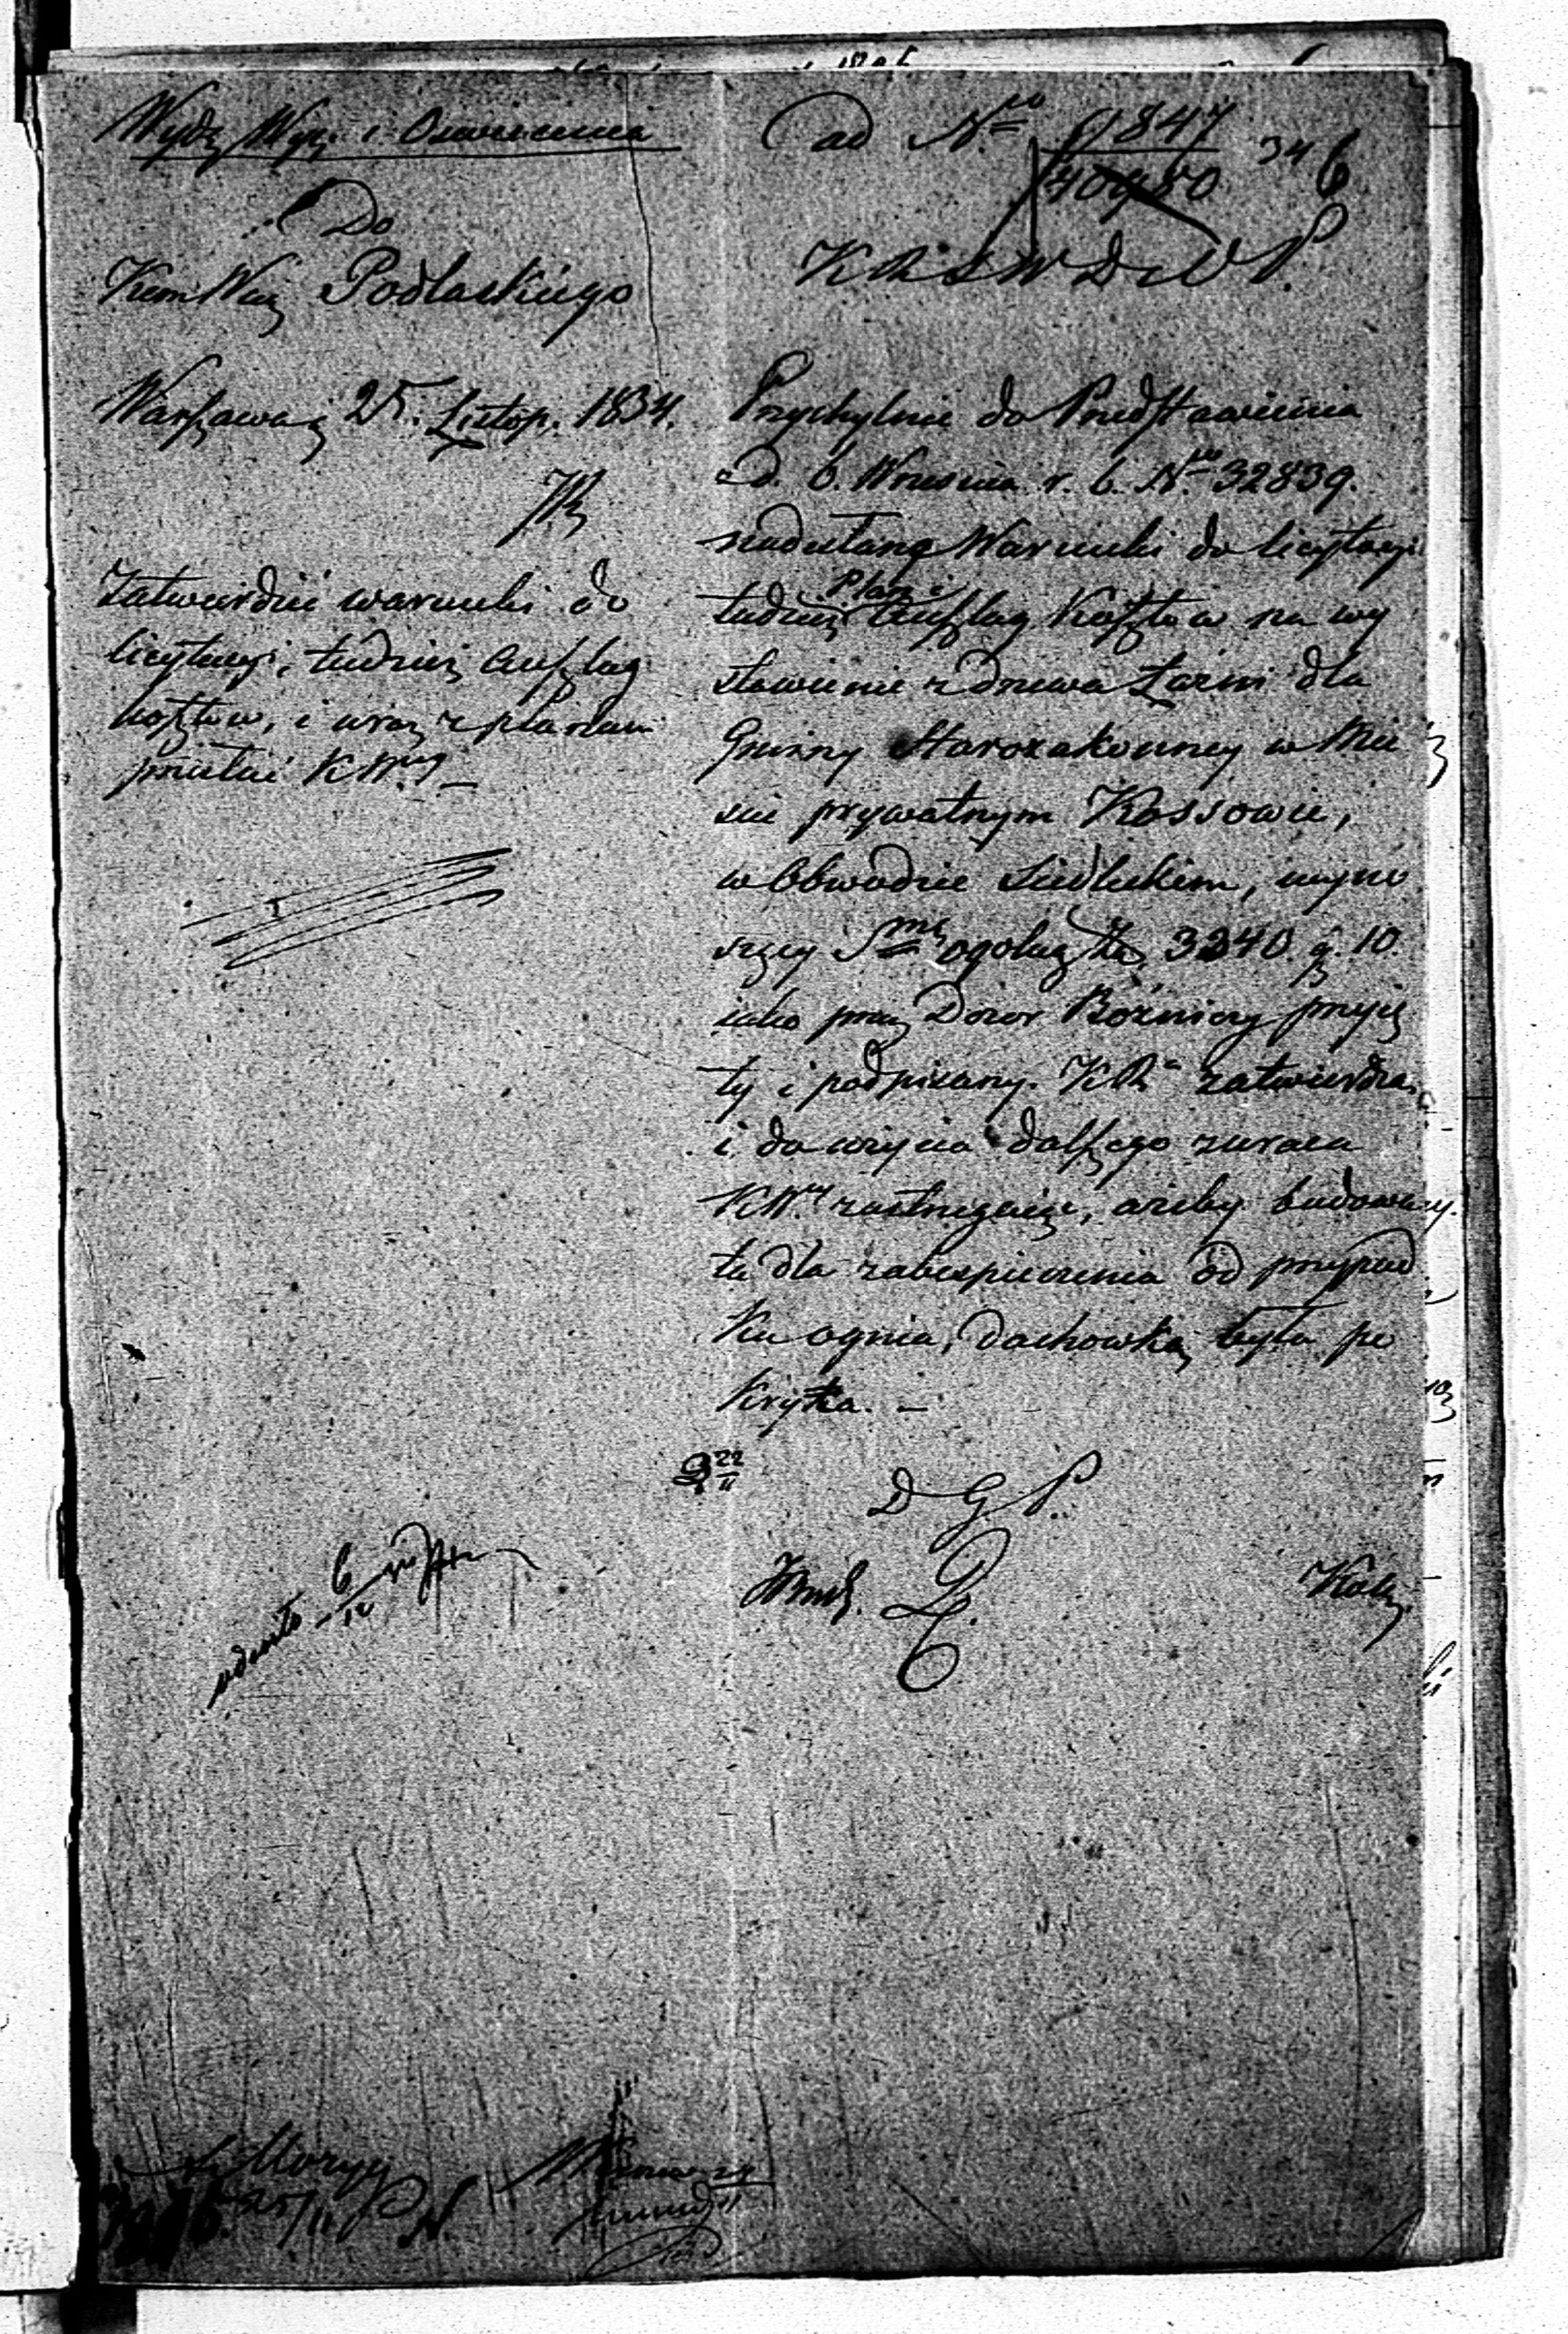 Wydz. Wyz. i Oswiecenia
Do
Kom Woj Podlaskiego
Warszawa d 25. Listop. 1834.
Zatwierdzić warunki do
licytacyi, tudzież Anszlag
kosztów, i wraz z planem
przesłać KW.
ad N.ro 1847 34 6
40980
K R S W D i O P.
Przychylnie do Przedstawienia
z d. 6. Wrzesnia r. b. N.ro 32839.
nadesłane Warunki do licytacyi
Plan i
tudzież Anszlag Kosztów na wy
stawienie z drzewa Łazni dla
Gminy Starozakonney w Mie
scie prywatnym Kossowie,
w Obwodzie Siedleckim, wyno
szący S.mę ogolną Złp 3240. g. 10.
iako przez Dozor Bóżniczy przyię
ty i podpisany. KR.a zatwierdza
i do użycia dalszego zwraca
KW. zastrzegaiąc, ażeby budowa
ta dla zabespieczenia od przypad
ku ognia, dachowką była po
kryta. —
22
11
D G P.
6
12
25/11